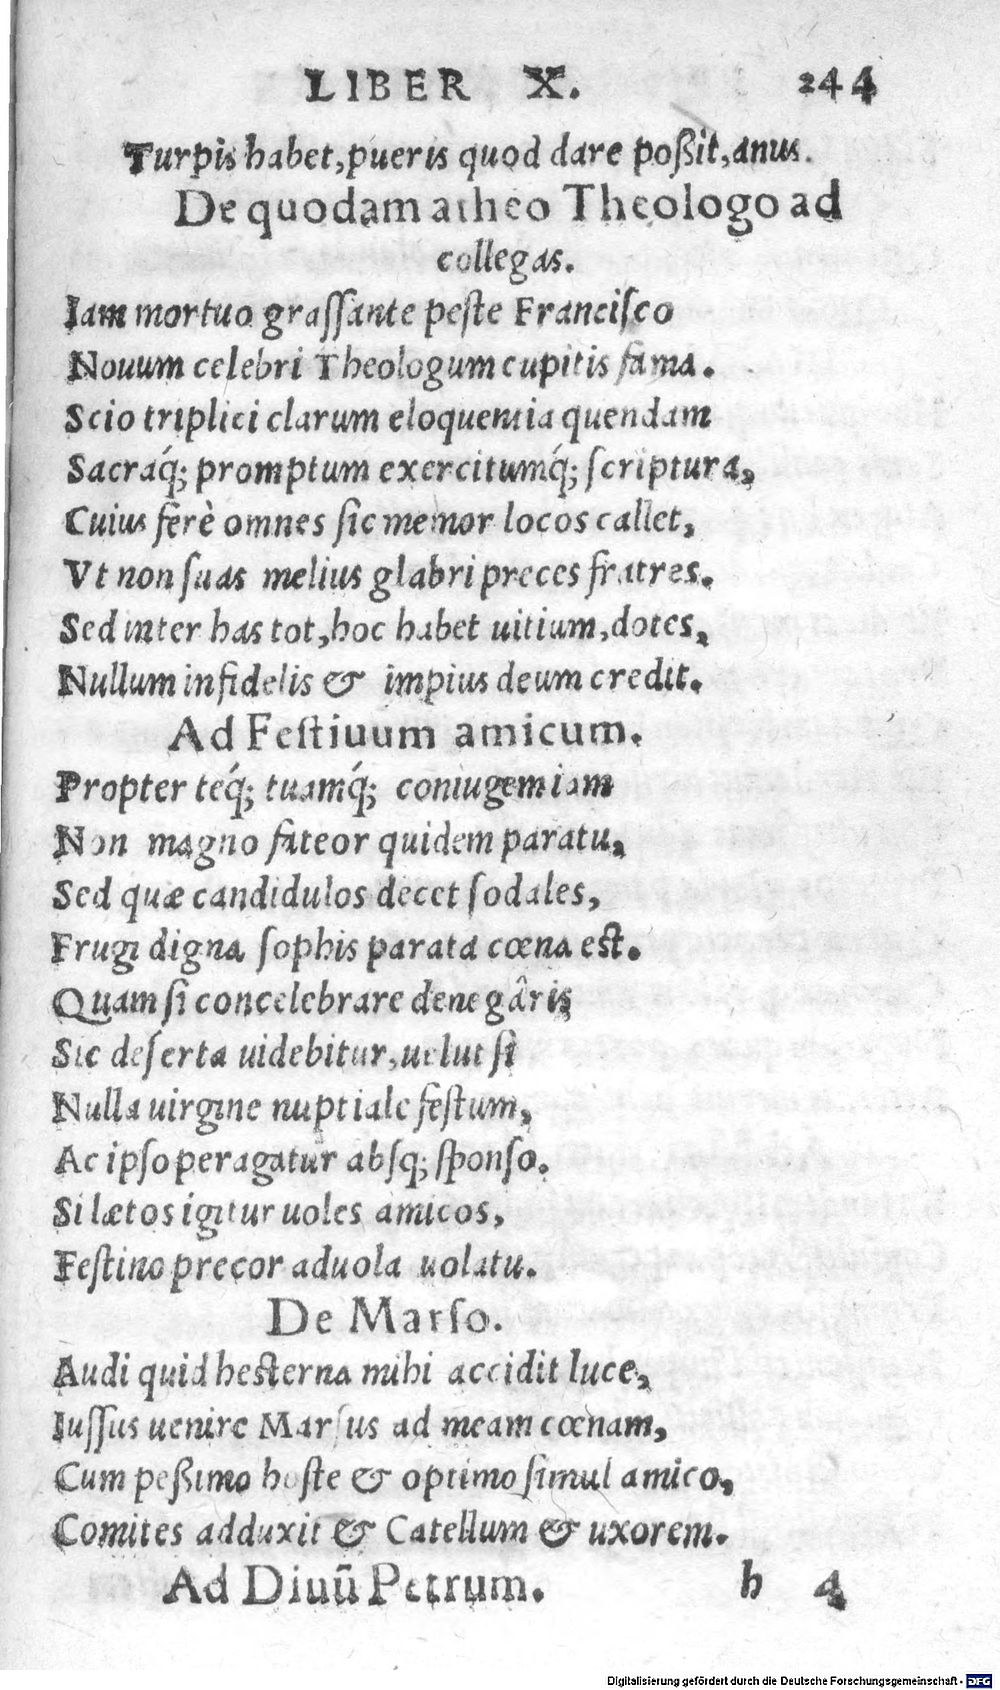 LIBER X. 244
Turpis habet, pueris quod dare poßit, anus.
De quodam atheo Theologo ad
collegas.
Iam mortuo graſſante peſte Franciſco
Nouum celebri Theologum cupitis fama.
Scio triplici clarum eloquentia quendam
Sacraq́; promptum exercitumq́; ſcriptura,
Cuius ferè omnes ſic memor locos callet,
Vt non ſuas melius glabri preces fratres.
Sed inter has tot, hoc habet uitium, dotes,
Nullum infidelis & impius deum credit.
Ad Feſtiuum amicum.
Propter teq́; tuamq́; coniugem iam
Non magno fateor quidem paratu,
Sed quæ candidulos decet ſodales,
Frugi digna ſophis parata cœna eſt.
Quam ſi concelebrare denegâris
Sic deſerta uidebitur, uelut ſi
Nulla uirgine nuptiale feſtum,
Ac ipſo peragatur abſq; ſponſo.
Si lætos igitur uoles amicos,
Feſtino precor aduola uolatu.
De Marſo.
Audi quid heſterna mihi accidit luce,
Iuſſus uenire Marſus ad meam cœnam,
Cum peßimo hoſte & optimo ſimul amico,
Comites adduxit & Catellum & uxorem.
Ad Diuū Petrum. h 4
Digitalisierung gefördert durch die Deutsche Forschungsgemeinschaft - DFG